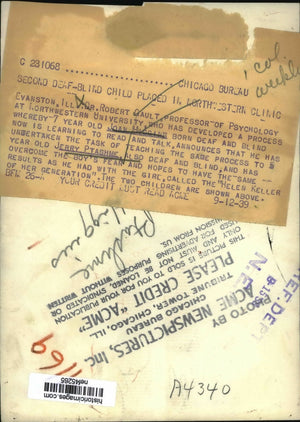 C 231068 CHICAGO BUREAU
SECOND DEAF-BLIND CHILD PLACED IN NORTHWESTERN CLINIC
EVANSTON, ILL.- DR. ROBERT GAULT, PROFESSOR OF PSYCHOLOGY
AT NORTHWESTERN UNIVERSITY, WHO HAS DEVELOPED A PROCESS
WHEREBY 7 YEAR OLD JOAN BORN DEAF AND BLIND
NOW IS LEARNING TO READ AND TALK, ANNOUNCES THAT HE HAS
UNDERTAKEN THE TASK OF TEACHING THE SAME PROCESS TO
YEAR OLD JERRY ALSO DEAF AND BLIND, AND HAS
OVERCOME THE BOY'S FEAR AND HOPES TO HAVE THE SAME
RESULTS AS HE HAD WITH THE GIRL, CALLED THE "HELEN KELLER
OF HER GENERATION". THE TWO CHILDREN ARE SHOWN ABOVE.
YOUR CREDIT MUST READ ACME 9-12-39
1 col
THIS PICTURE IS SOLD TO YOU FOR YOUR PUBLICATION
ONLY AND MUST NOT BE LOANED, SYNDICATED OR
USED FOR ADVERTISING PURPOSES WITHOUT WRITTEN
PERMISSION FROM US.
PLEASE CREDIT "ACME"
PHOTO BY
ACME NEWSPICTURES, Inc
CHICAGO BUREAU
TRIBUNE TOWER, CHICAGO, ILL.
REF DEPT
N.E.A.
1169
historicimages.com
A4340